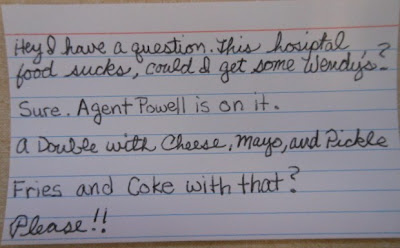 Hey I have a question. This hosiptal
food sucks, could I get some Wendys?
Sure. Agent Powell is on it.
A Double with Cheese, Mayo, and Pickle
Fries and Coke with that?
Please!!